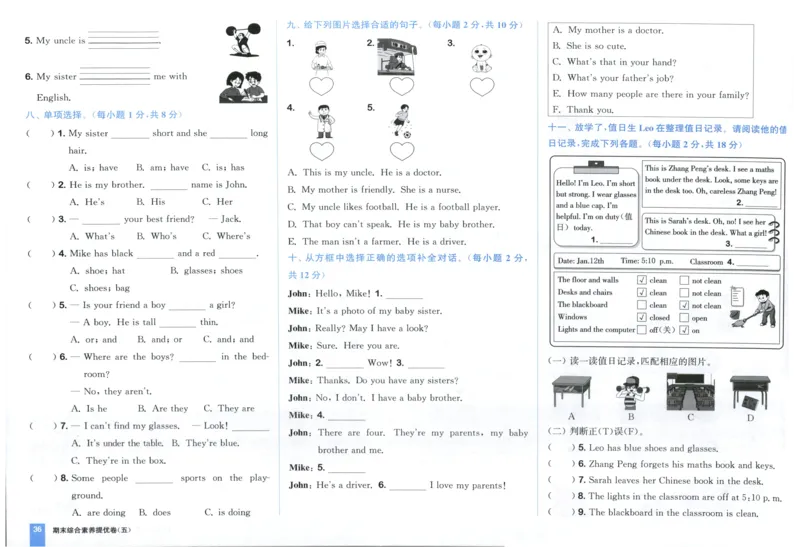 5. My uncle is
6. My sister me with
English.
八、单项选择。(每小题 1 分,共 8 分)
( ) 1. My sister ________ short and she ________ long
hair.
A. is; have B. am; have C. is; has
( ) 2. He is my brother. ________ name is John.
A. He's B. His C. Her
( ) 3. — ________ your best friend? — Jack.
A. What's B. Who's C. Where's
( ) 4. Mike has black ________ and a red ________.
A. shoe; hat B. glasses; shoes
C. shoes; bag
( ) 5. — Is your friend a boy ________ a girl?
— A boy. He is tall ________ thin.
A. or; and B. and; or C. and; and
( ) 6. — Where are the boys? ________ in the bed-
room?
— No, they aren't.
A. Is he B. Are they C. They are
( ) 7. — I can't find my glasses. — Look! ________
A. It's under the table. B. They're blue.
C. They're in the box.
( ) 8. Some people ________ sports on the play-
ground.
A. are doing B. does C. is doing
36 期末综合素养提优卷(五)
九、给下列图片选择合适的句子。(每小题 2 分,共 10 分)
1. 2. 3.
4. 5.
A. This is my uncle. He is a doctor.
B. My mother is friendly. She is a nurse.
C. My uncle likes football. He is a football player.
D. That boy can't speak. He is my baby brother.
E. The man isn't a farmer. He is a driver.
十、从方框中选择正确的选项补全对话。(每小题 2 分,
共 12 分)
John: Hello, Mike! 1. ________
Mike: It's a photo of my baby sister.
John: Really? May I have a look?
Mike: Sure. Here you are.
John: 2. ________ Wow! 3. ________
Mike: Thanks. Do you have any sisters?
John: No, I don't. I have a baby brother.
Mike: 4. ________
John: There are four. They're my parents, my baby
brother and me.
Mike: 5. ________
John: He's a driver. 6. ________ I love my parents!
A. My mother is a doctor.
B. She is so cute.
C. What's that in your hand?
D. What's your father's job?
E. How many people are there in your family?
F. Thank you.
十一、放学了,值日生 Leo 在整理值日记录。请阅读他的值
日记录,完成下列各题。(每小题 2 分,共 18 分)
Hello! I'm Leo. I'm short
but strong. I wear glasses
and a blue cap. I'm
helpful. I'm on duty(值
日) today.
1. ________
This is Zhang Peng's desk. I see a maths
book under the desk. Look, some keys are
in the desk too. Oh, careless Zhang Peng!
2. ________
This is Sarah's desk. Oh, no! I see her
Chinese book in the desk. What a girl!
3. ________
Date: Jan.12th Time: 5:10 p.m. Classroom 4. ________
The floor and walls ☑ clean ☐ not clean
Desks and chairs ☑ clean ☐ not clean
The blackboard ☐ clean ☑ not clean
Windows ☑ closed ☐ open
Lights and the computer ☐ off(关) ☑ on
(一) 读一读值日记录,匹配相应的图片。
A B C D
(二) 判断正(T)误(F)。
( ) 5. Leo has blue shoes and glasses.
( ) 6. Zhang Peng forgets his maths book and keys.
( ) 7. Sarah leaves her Chinese book in the desk.
( ) 8. The lights in the classroom are off at 5:10 p.m.
( ) 9. The blackboard in the classroom is clean.